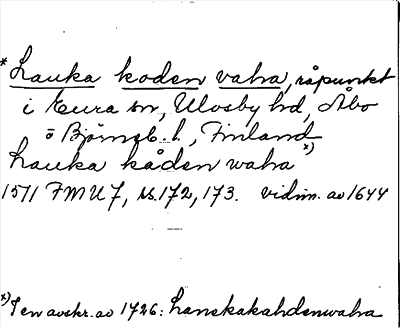 * Lauka koden vaha, råpunkt
i Eura sn, Ulvsby hd, Åbo
o Björneb. l., Finland
Lauka kåden waha x)
1571 FMU 7, ss. 172, 173. vidim. av 1644
—
x) I en avskr. av 1726: Lanskakahdenwaha